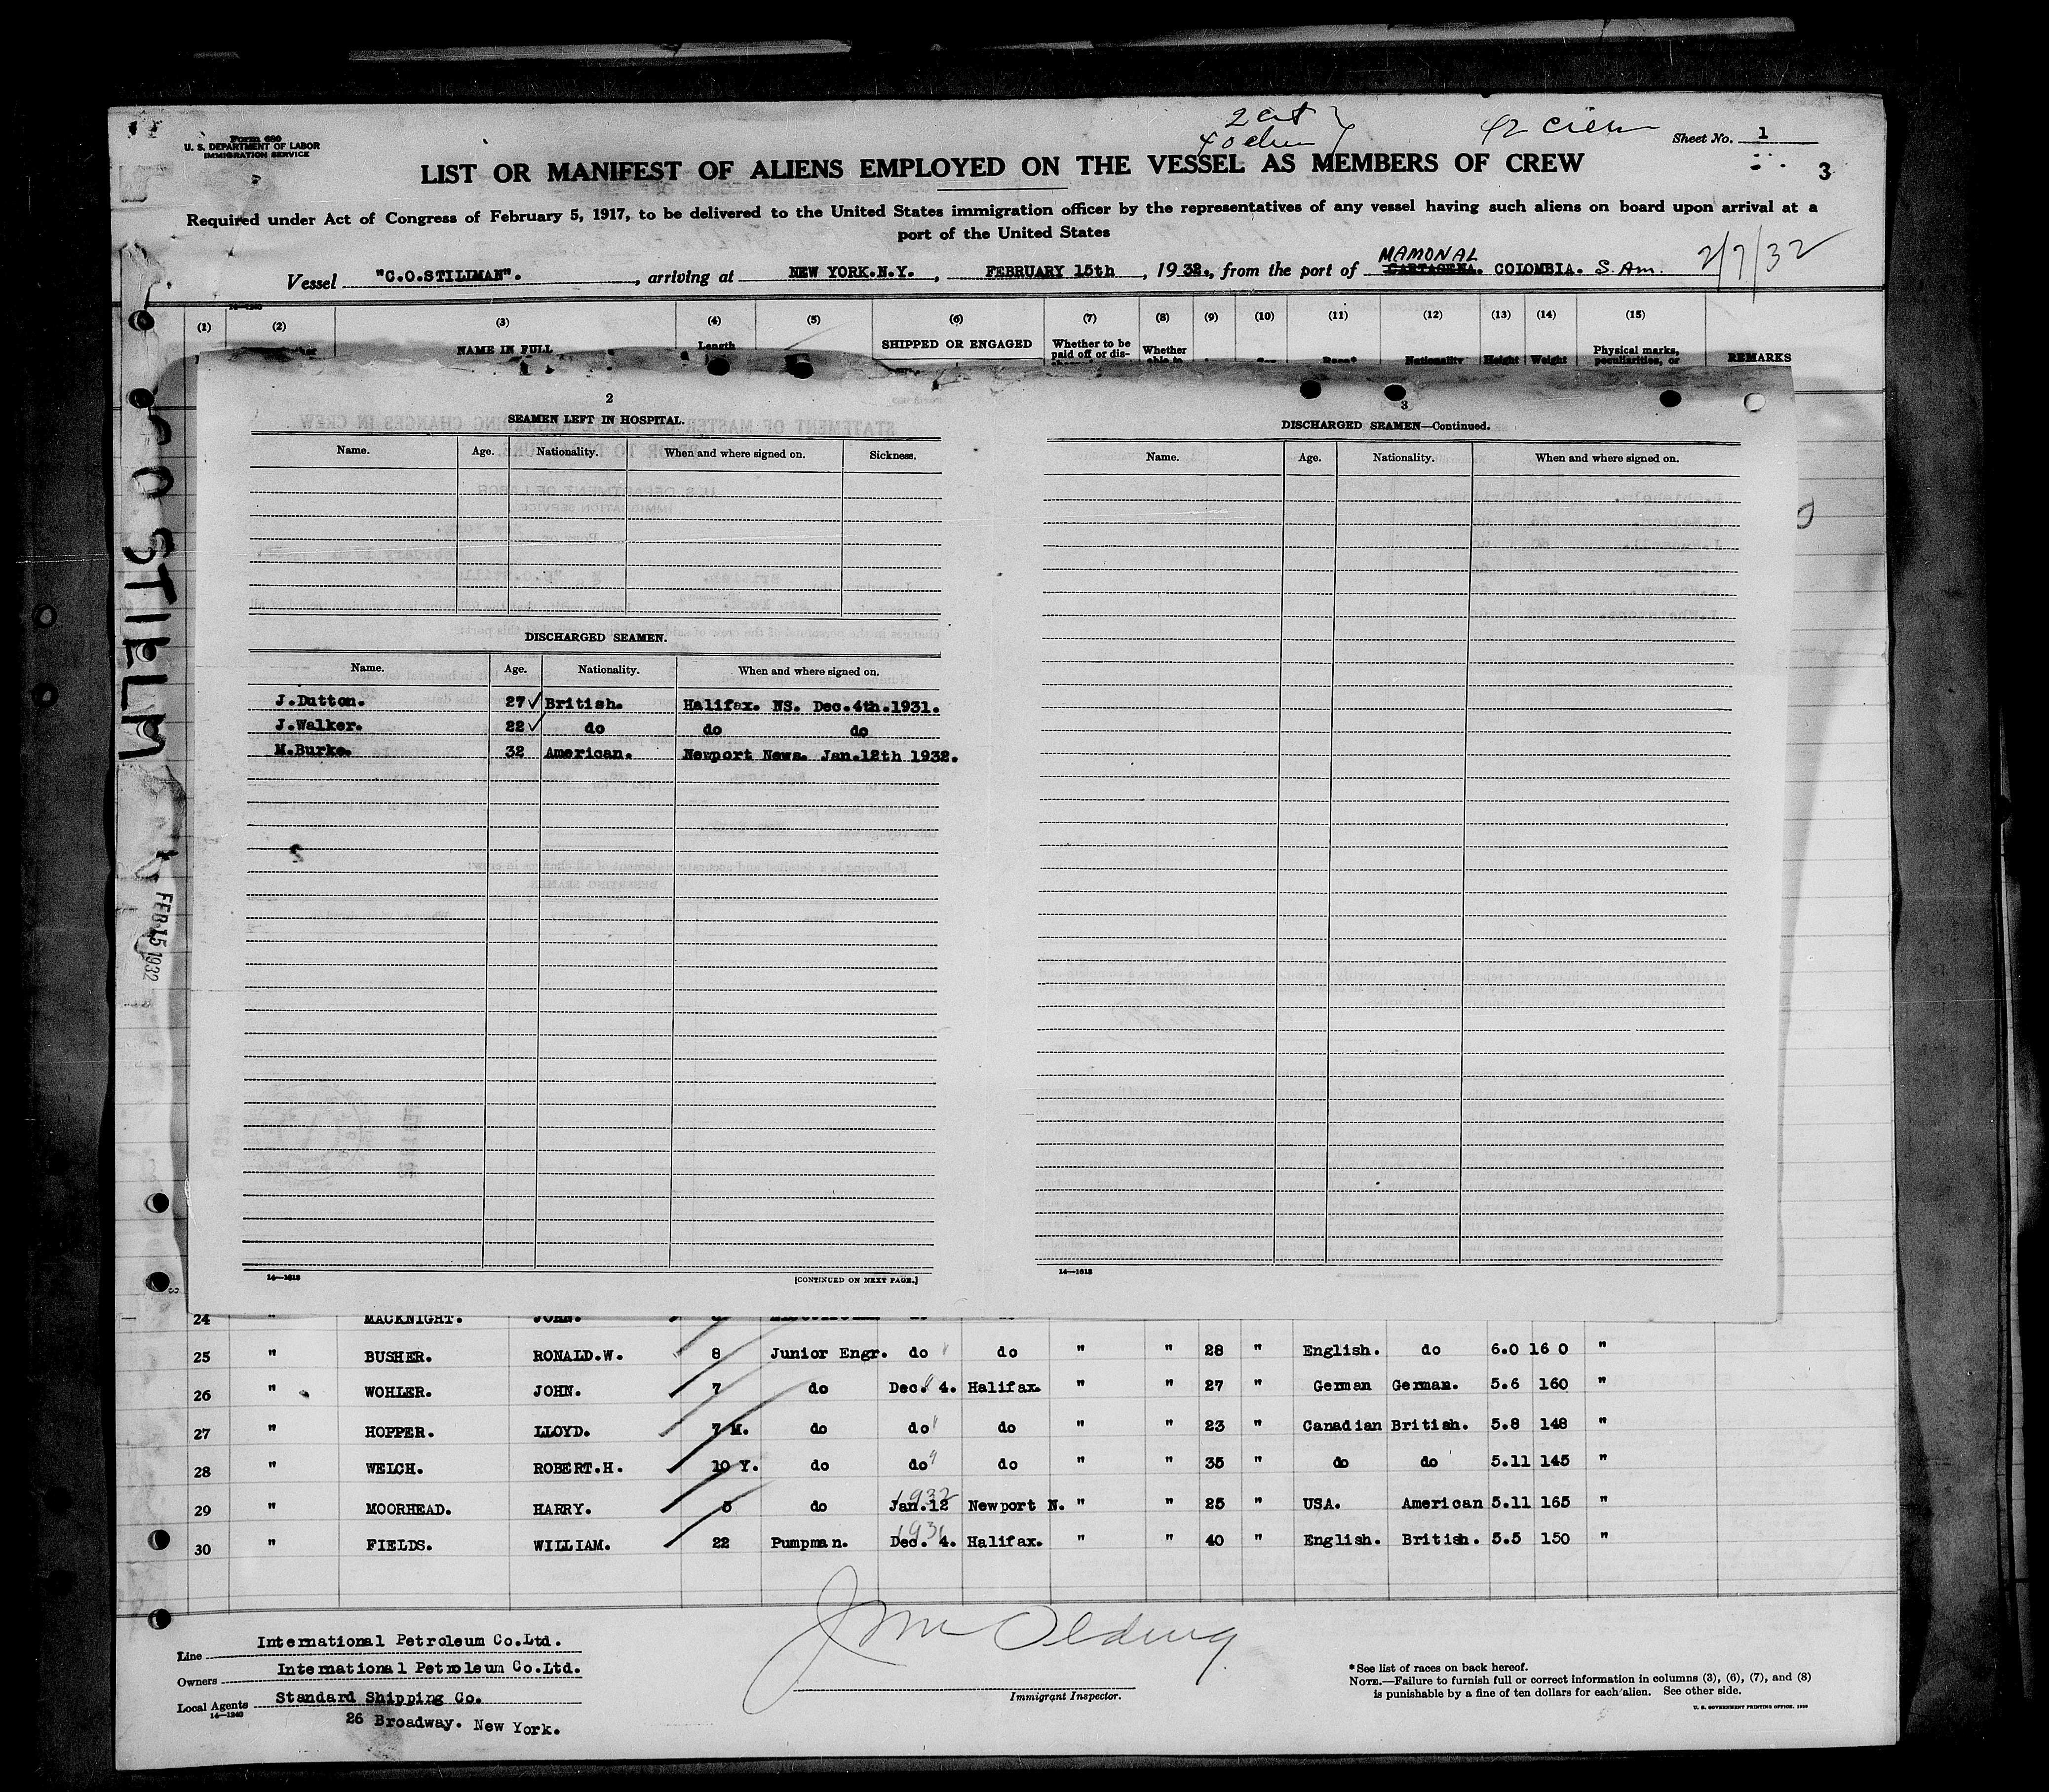 Form 680
U. S. DEPARTMENT OF LABOR
IMMIGRATION SERVICE
42 crew
Sheet No. 1
3
LIST OR MANIFEST OF ALIENS EMPLOYED ON THE VESSEL AS MEMBERS OF CREW
Required under Act of Congress of February 5, 1917, to be delivered to the United States immigration officer by the representatives of any vessel having such aliens on board upon arrival at a
port of the United States
MAMONAL
Vessel "C.O.STILLMAN". , arriving at NEW YORK.N.Y. , FEBRUARY 15th , 19 32., from the port of CARTAGENA. COLOMBIA. S. Am. 2/7/32
14—1240
(1) (2) (3) (4) (5) (6) (7) (8) (9) (10) (11) (12) (13) (14) (15)
NAME IN FULL Length SHIPPED OR ENGAGED Whether to be Whether Race* Nationality Height Weight Physical marks, REMARKS
paid off or dis- able to peculiarities, or
C O STILLM
FEB 15 1932
2
SEAMEN LEFT IN HOSPITAL.
Name. Age. Nationality. When and where signed on. Sickness.
DISCHARGED SEAMEN.
Name. Age. Nationality. When and where signed on.
J.Dutton. 27 ✓ British. Halifax. NS. Dec.4th.1931.
J.Walker. 22 ✓ do do do
M.Burke. 32 American. Newport News. Jan.12th 1932.
14—1613 [CONTINUED ON NEXT PAGE.]
3
DISCHARGED SEAMEN—Continued.
Name. Age. Nationality. When and where signed on.
14—1613
24 " MACKNIGHT. JOHN.
25 " BUSHER. RONALD.W. 8 Junior Engr. do do " " 28 " English. do 6.0 160 "
26 " WOHLER. JOHN. 7 do Dec. 4. Halifax. " " 27 " German German. 5.6 160 "
27 " HOPPER. LLOYD. 7 M. do do do " " 23 " Canadian British. 5.8 148 "
28 " WELCH. ROBERT.H. 10 Y. do do do " " 35 " do do 5.11 145 "
1932
29 " MOORHEAD. HARRY. 5 do Jan.12 Newport N. " " 25 " USA. American 5.11 165 "
1931
30 " FIELDS. WILLIAM. 22 Pumpman. Dec. 4. Halifax. " " 40 " English. British. 5.5 150 "
Line International Petroleum Co.Ltd.
Owners International Petroleum Co.Ltd.
Local Agents Standard Shipping Co.
14—1240
26 Broadway. New York.
Immigrant Inspector.
*See list of races on back hereof.
NOTE.—Failure to furnish full or correct information in columns (3), (6), (7), and (8)
is punishable by a fine of ten dollars for each alien. See other side.
U. S. GOVERNMENT PRINTING OFFICE. 1930